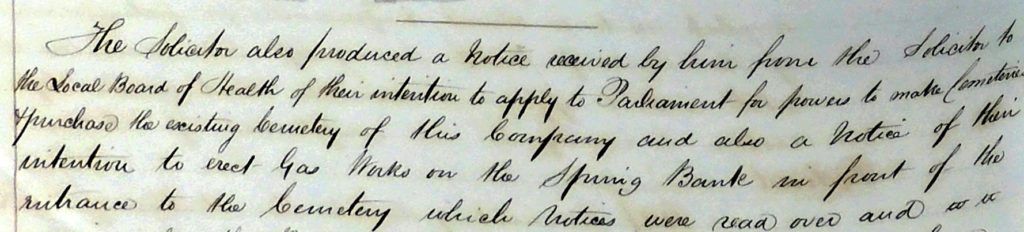 The Solicitor also produced a Notice received by him from the Solicitor to
the Local Board of Health of their intention to apply to Parliament for powers to make Cemeteries
& purchase the existing Cemetery of this Company and also a Notice of their
intention to erect Gas Works on the Spring Bank in front of the
entrance to the Cemetery which Notices were read over and